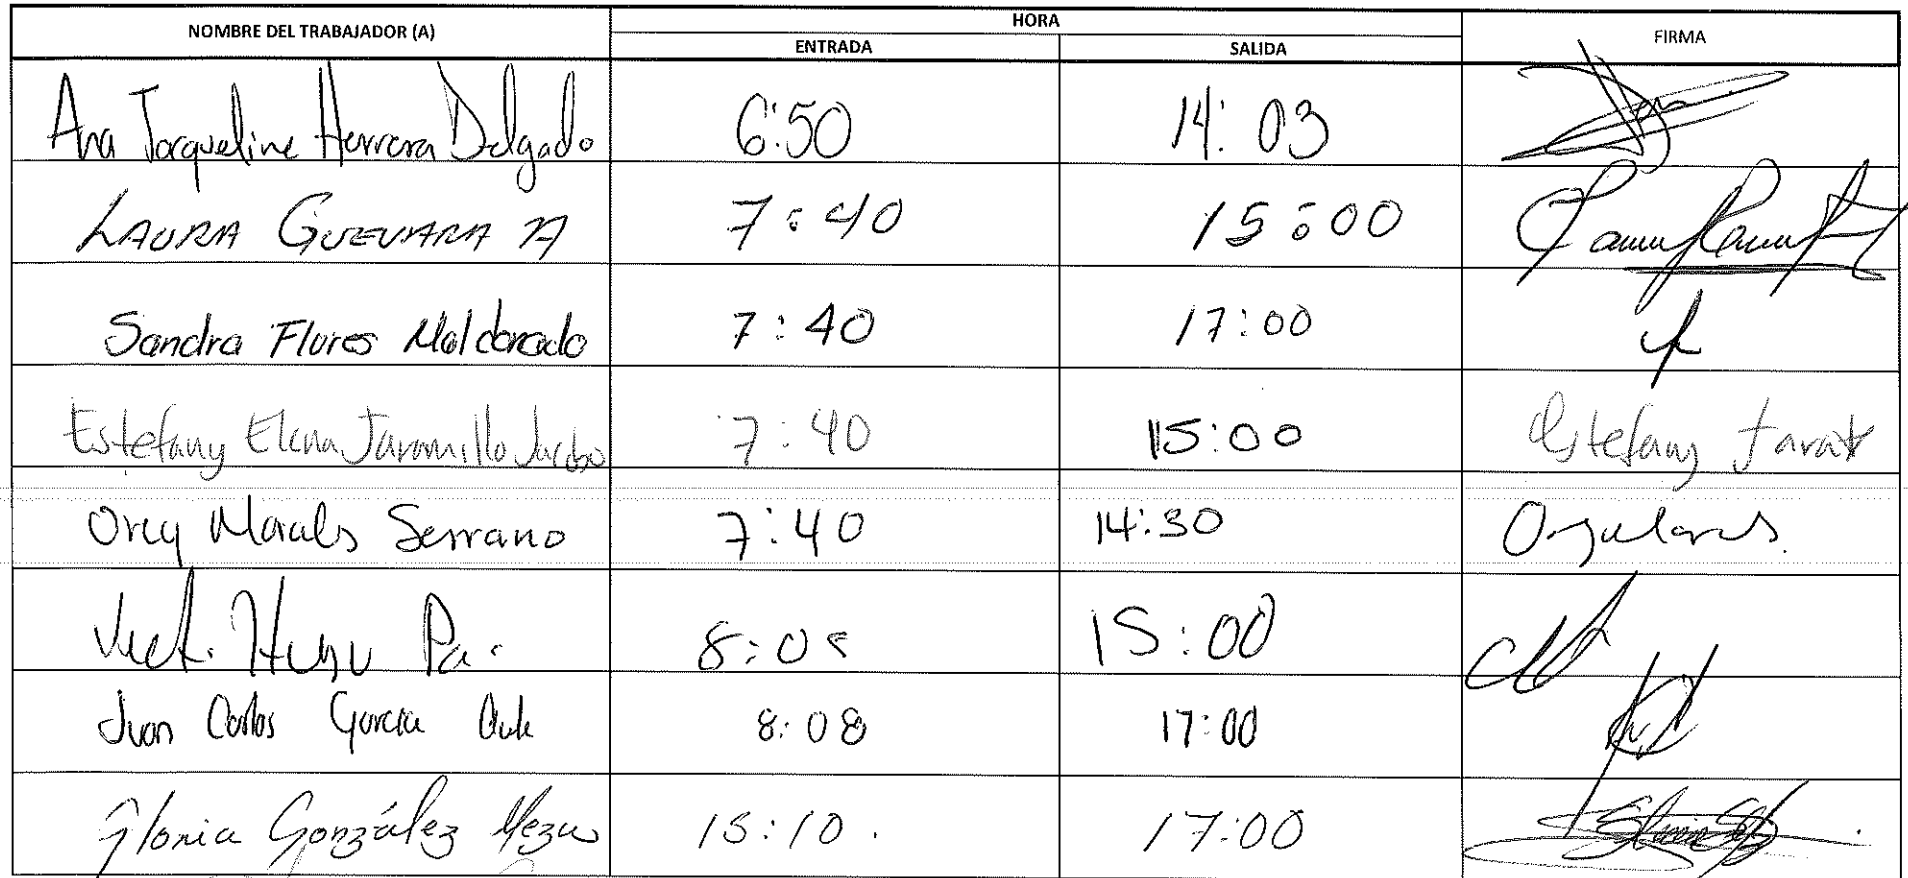 NOMBRE DEL TRABAJADOR (A) HORA FIRMA
ENTRADA SALIDA
Ana Jacqueline Herrera Delgado 6:50 14:03
LAURA GUEVARA 7:40 15:00
Sandra Flores Maldonado 7:40 17:00
Estefany Elena Jaramillo Jacobo 7:40 15:00 Estefany
Morales Serrano 7:40 14:30
Hugo 15:00
Juan Carlos Garcia 8:08 17:00
Gloria González Meza 15:10. 17:00